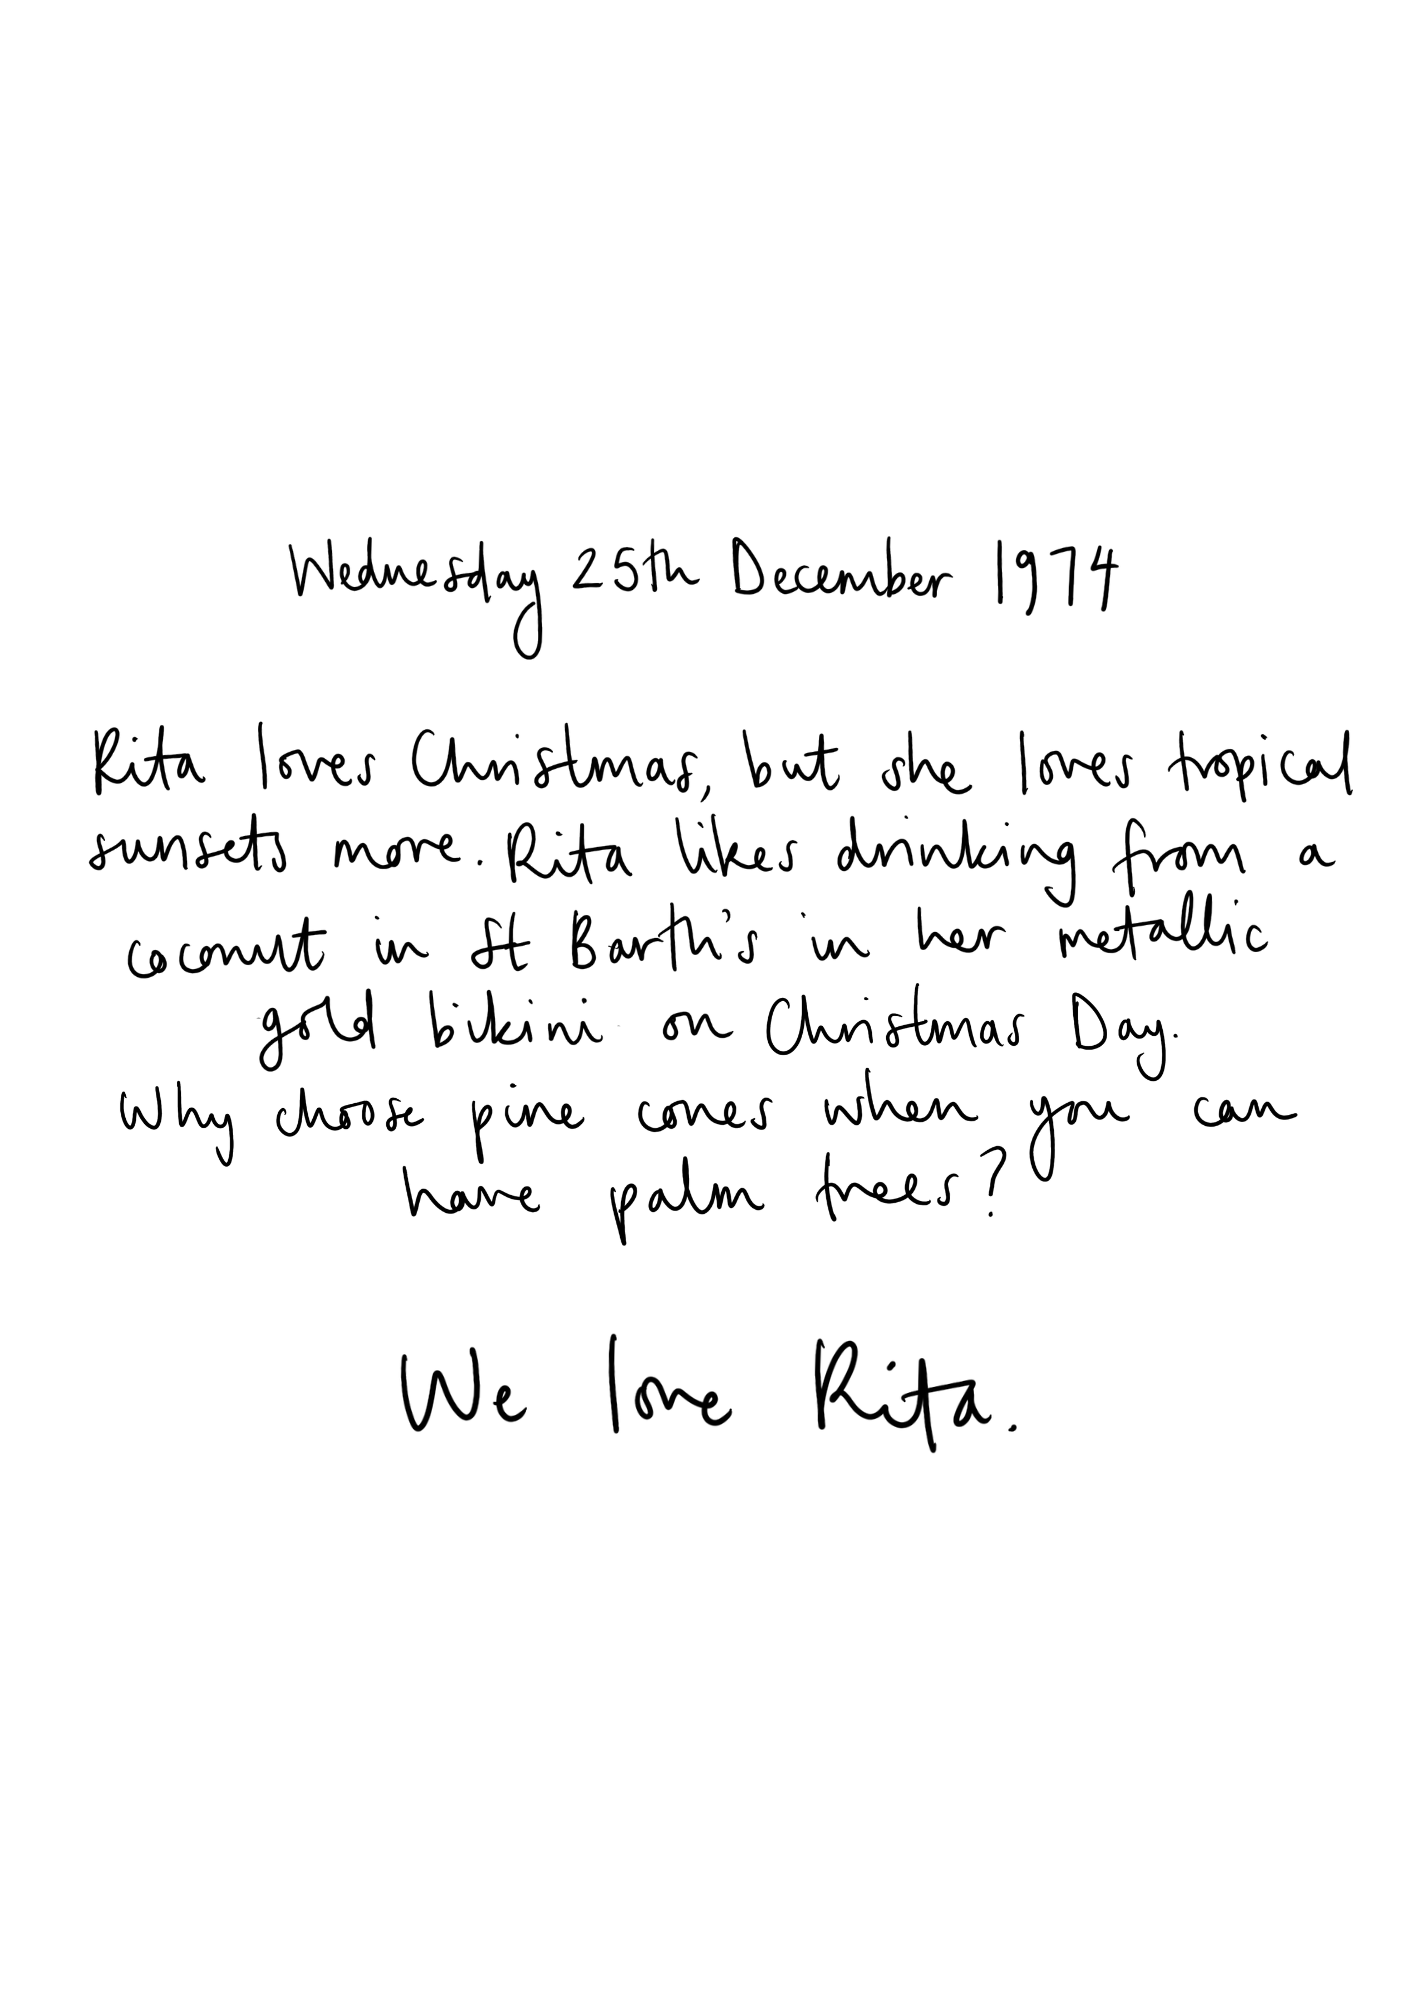 Wednesday 25th December 1974
Rita loves Christmas, but she loves tropical
sunsets more. Rita likes drinking from a
coconut in St Barth's in her metallic
gold bikini on Christmas Day.
Why choose pine cones when you can
have palm trees?
We love Rita.